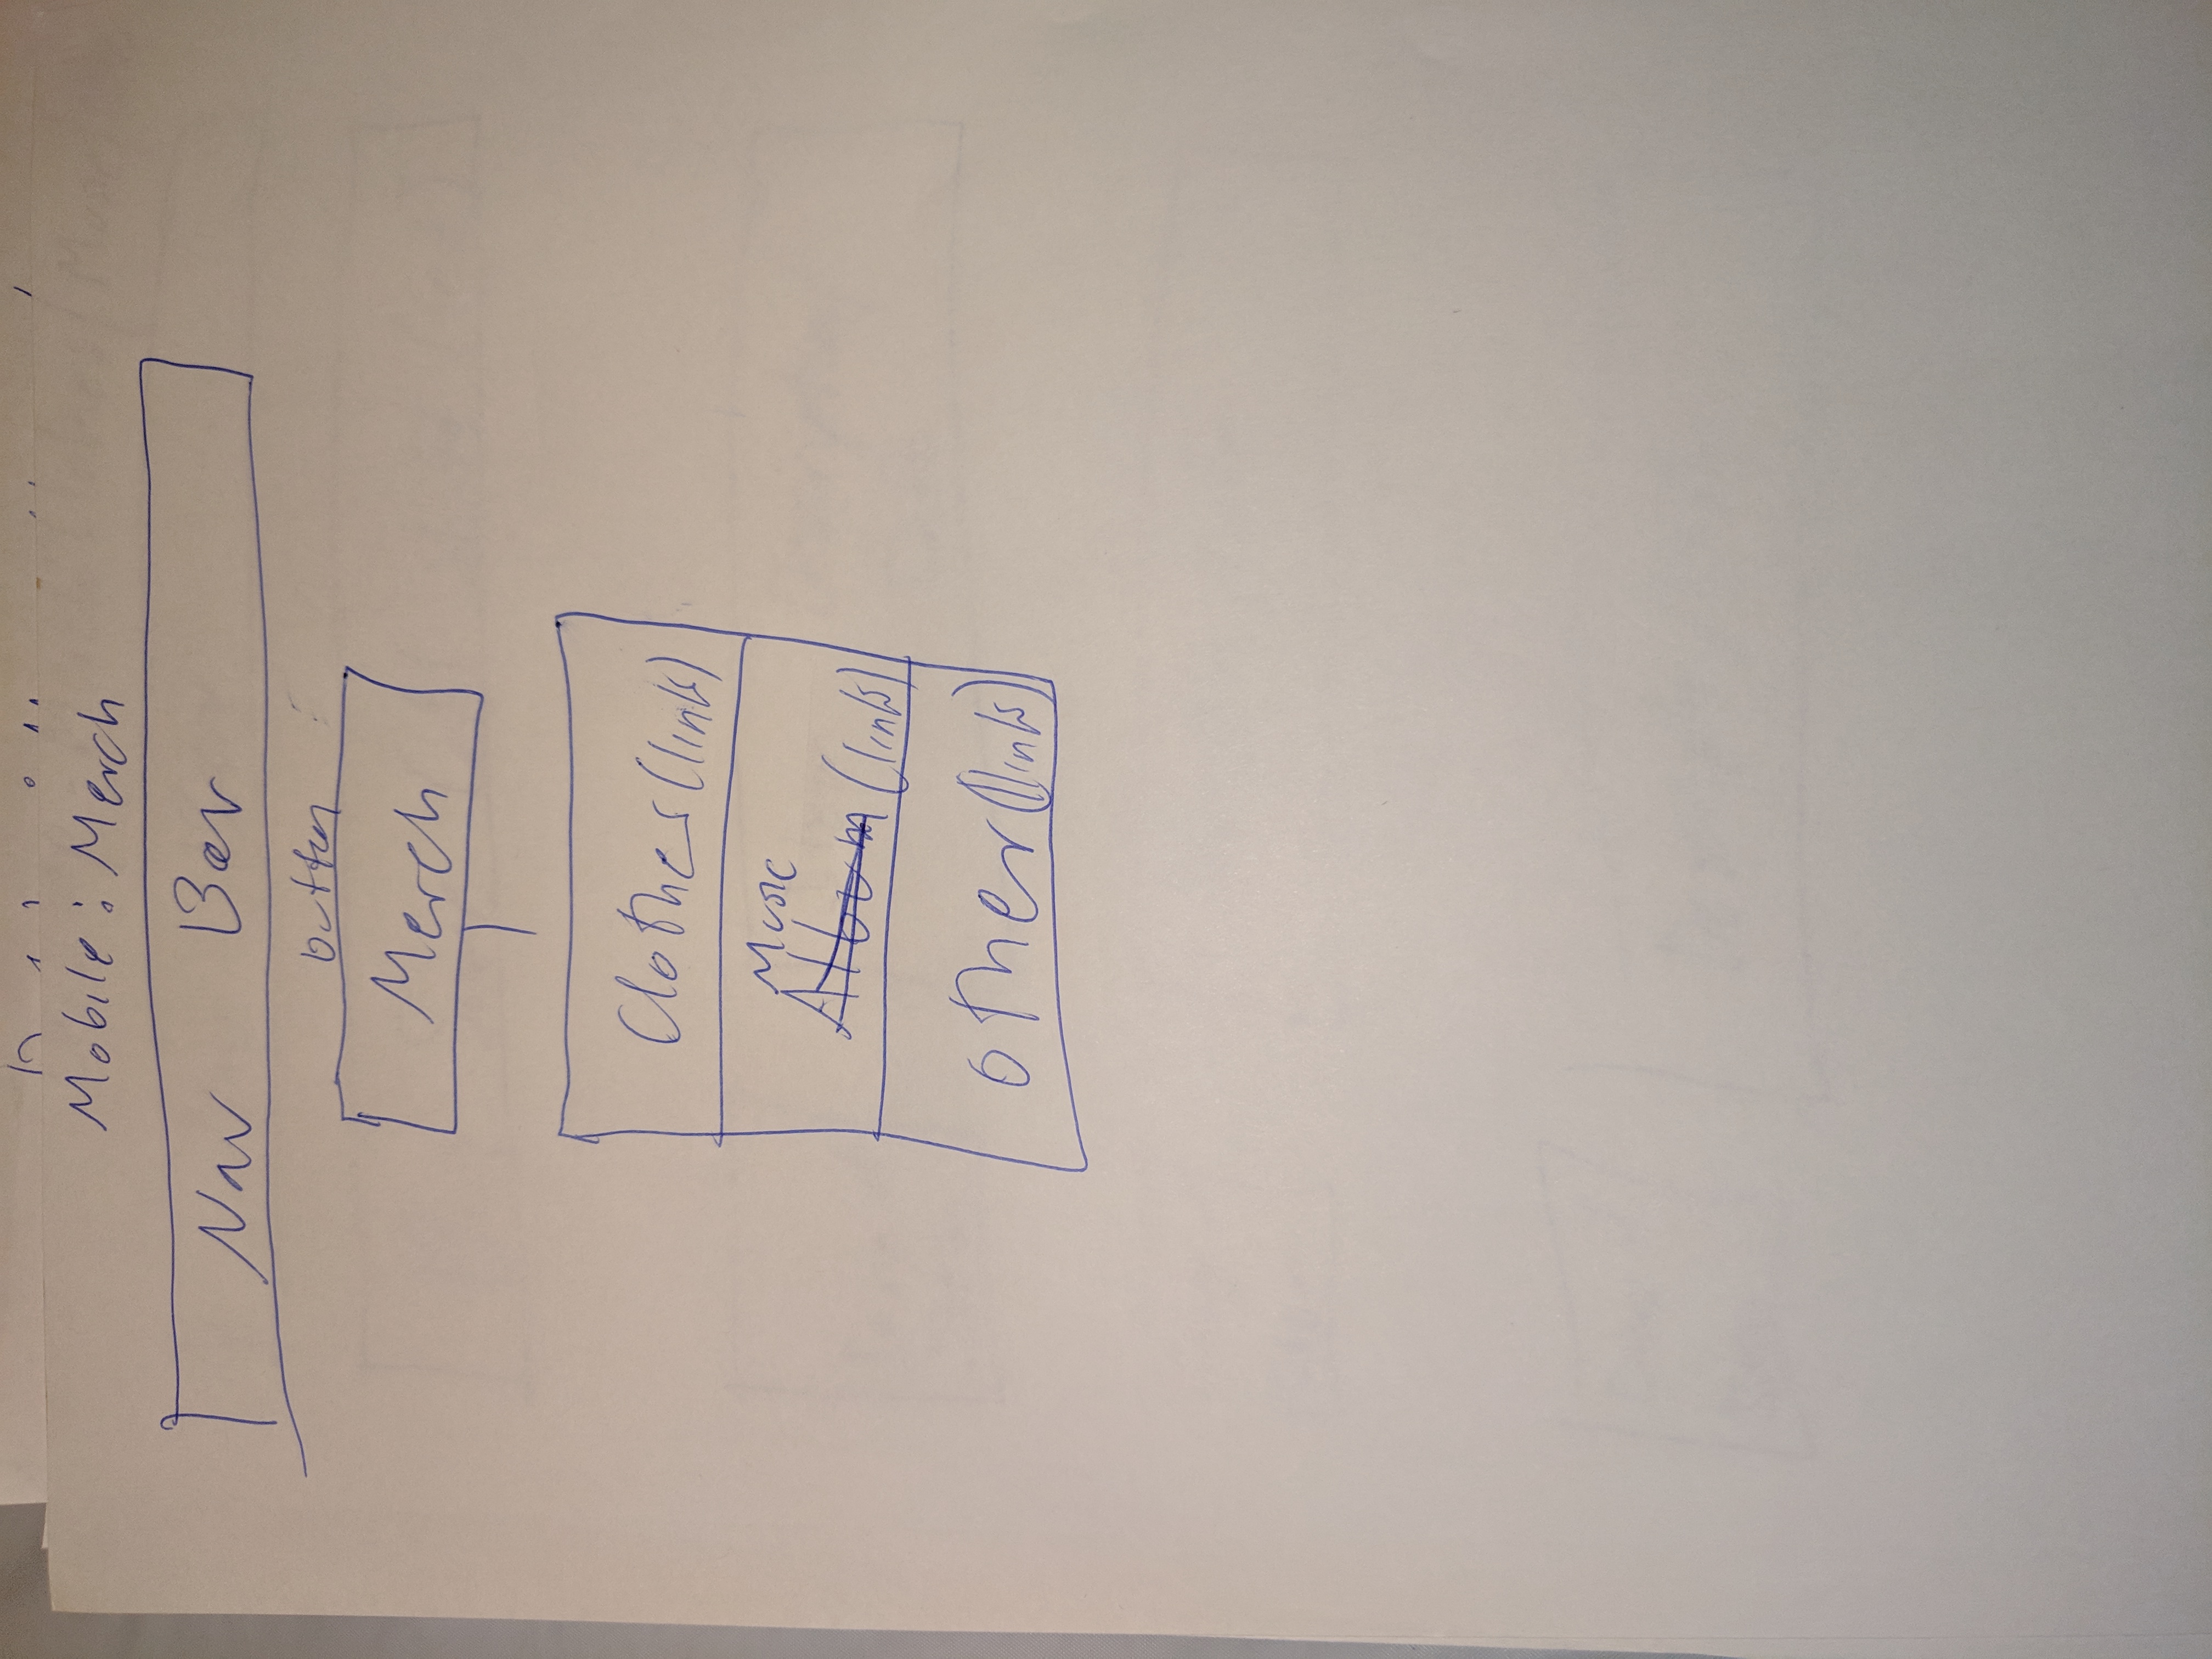 Mobile: Merch
Nav Bar
button
Merch
Clothes (links)
Music
Album (links)
other (links)